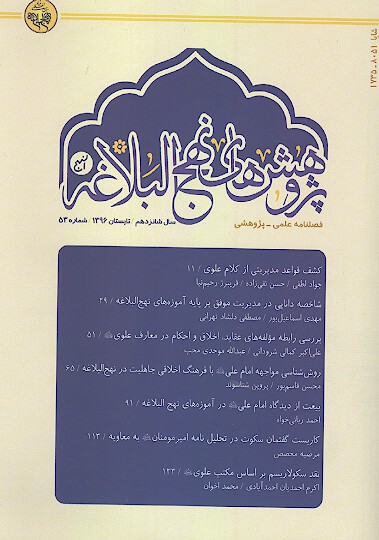 شاپا ۸۰۵۱-۱۷۳۵
پژوهش‌های نهج البلاغه
سال شانزدهم / تابستان ۱۳۹۶ / شماره ۵۳
فصلنامه علمی - پژوهشی
کشف قواعد مدیریتی از کلام علوی / ۱۱
جواد لطفی / حسن نقی‌زاده / فریبرز رحیم‌نیا
شاخصه دانایی در مدیریت موفق بر پایه آموزه‌های نهج‌البلاغه / ۲۹
مهدی اسماعیل‌پور / مصطفی دلشاد تهرانی
بررسی رابطه مؤلفه‌های عقاید، اخلاق و احکام در معارف علوی / ۵۱
علی‌اکبر کمالی شروداتی / عبدالله موحدی محب
روش‌شناسی مواجهه امام علی با فرهنگ اخلاقی جاهلیت در نهج‌البلاغه / ۶۵
محسن قاسم‌پور / پروین شناسوند
بیعت از دیدگاه امام علی در آموزه‌های نهج البلاغه / ۹۱
احمد ربانی‌خواه
کاربست گفتمان سکوت در تحلیل نامه امیرمومنان به معاویه / ۱۱۳
مرضیه محصص
نقد سکولاریسم بر اساس مکتب علوی / ۱۳۳
اکرم احمدیان احمدآبادی / محمد اخوان